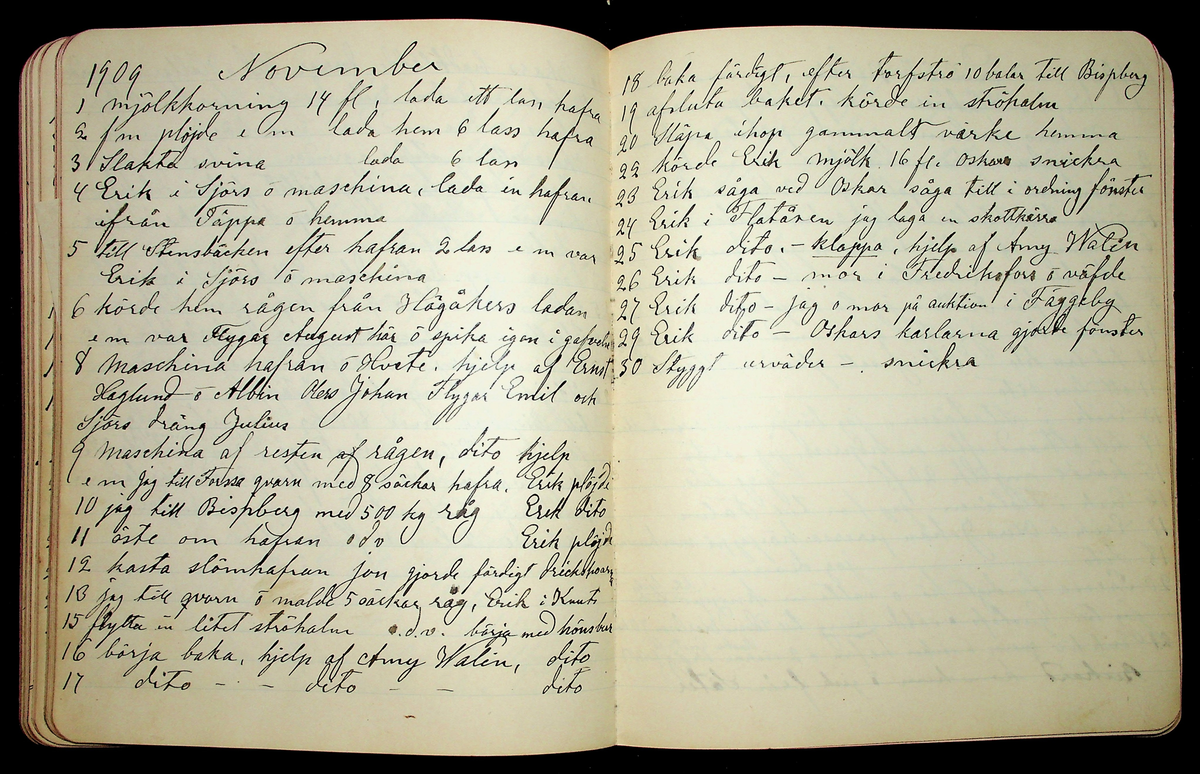 1909 November
1 mjölkkörning 14 fl, lada ett lan hafra
2 fm plöjde e m lada hem 6 lass hafra
3 Slakta svina lada 6 lan
4 Erik i Sjörs ö maschina, lada in hafran
ifrån Täppa ö hemma
5 till Stensbäcken efter hafran 2 lass e m var
Erik i Sjörs ö maschina
6 körde hem rågen från Hägåkers ladan
e m var Flygar August här ö spika igen i gafveln
8 Maschina hafran ö Hvete. hjelp af Ernst
Haglund ö Albin Olers Johan Flygar Emil och
Sjörs dräng Julius
9 Maschina af resten af rågen, dito hjelp
e m jag till Forssa qvarn med 8 säckar hafra. Erik plöjde
10 jag till Bispberg med 500 kg råg Erik dito
11 öste om hafran o d v Erik plöjde
12 kasta slömhafran jon gjorde färdigt
13 jag till qvarn ö malde 5 säckar råg, Erik i Knuts
15 flytta in litet ströhalm o.d.v. börja med hönsbur
16 börja baka, hjelp af Amy Walén, dito
17 dito - - dito - - dito
18 baka färdigt, efter torfströ 10 balar till Bispberg
19 afsluta baket. körde in ströhalm
20 Släpa ihop gammalt värke hemma
22 körde Erik mjölk 16 fl. Oskar snickra
23 Erik såga ved Oskar såga till i ordning fönster
24 Erik i Flatåren jag laga en skottkärra
25 Erik dito. - klappa, hjelp af Amy Walén
26 Erik dito - mor i Fredriksfors ö väfde
27 Erik dito - jag o mor på auktion i Fäggeby
29 Erik dito - Oskars karlarna gjorde fönster
30 Styggt urväder - snickra